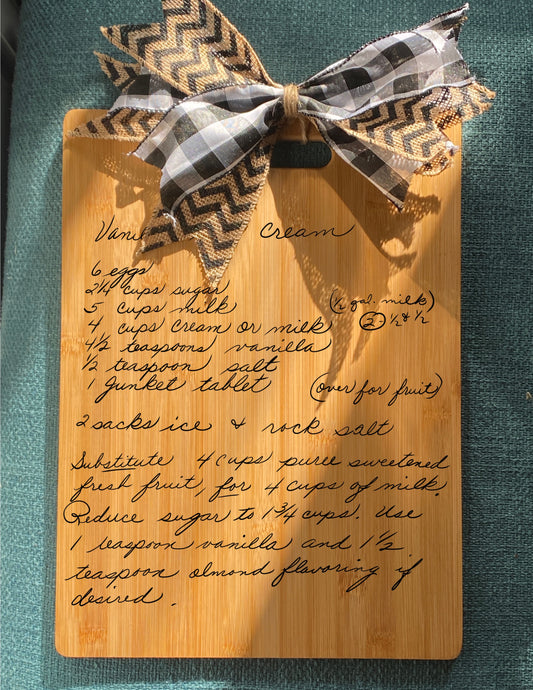 Vani cream
6 eggs
2 1/4 cups sugar
5 cups milk (1/2 gal. milk)
4 cups cream or milk 2 - 1/2 & 1/2
4 1/2 teaspoons vanilla
1/2 teaspoon salt
1 junket tablet (over for fruit)
2 sacks ice & rock salt
Substitute 4 cups puree sweetened
fresh fruit, for 4 cups of milk.
Reduce sugar to 1 3/4 cups. Use
1 teaspoon vanilla and 1 1/2
teaspoon almond flavoring if
desired.